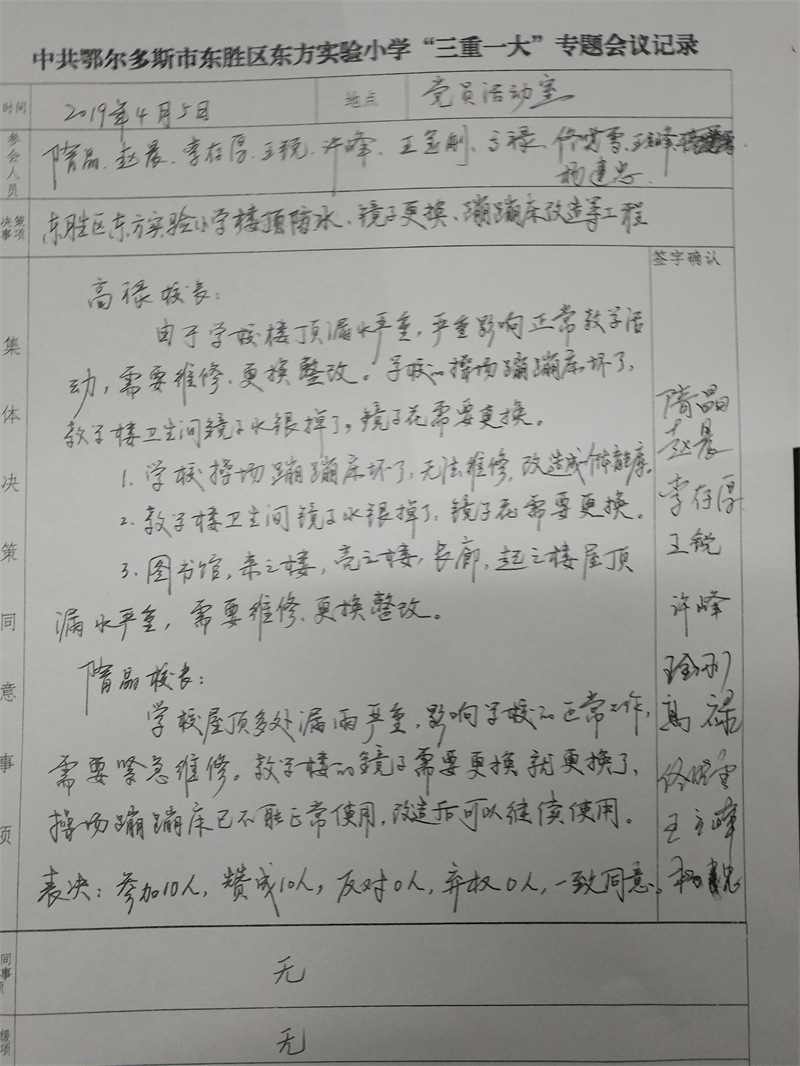 中共鄂尔多斯市东胜区东方实验小学“三重一大”专题会议记录
时间 2019年4月5日 地点 党员活动室
参会人员 隋晶、赵晨、李存厚、王锐、许峰、王金刚、高禄、佟晓雪、王立峰
杨建忠
决策事项 东胜区东方实验小学楼顶防水、镜子更换、蹦蹦床改造等工程
签字确认
集体决策同意事项
高禄校长：
由于学校楼顶漏水严重，严重影响正常教学活
动，需要维修、更换整改。学校的操场蹦蹦床坏了，
教学楼卫生间镜子水银掉了，镜子花需要更换。
1. 学校操场蹦蹦床坏了，无法维修，改造成
2. 教学楼卫生间镜子水银掉了，镜子花需要更换。
3. 图书馆，来之楼，亮之楼，长廊，起之楼屋顶
漏水严重，需要维修、更换整改。
隋晶校长：
学校屋顶多处漏雨严重，影响学校的正常工作，
需要紧急维修。教学楼的镜子需要更换就更换了，
操场蹦蹦床已不能正常使用，改造后可以继续使用。
表决：参加10人，赞成10人，反对0人，弃权0人，一致同意。
隋晶
赵晨
李存厚
王锐
许峰
王金刚
高禄
佟晓雪
王立峰
杨建忠
同
事
项
无
缓
项
无